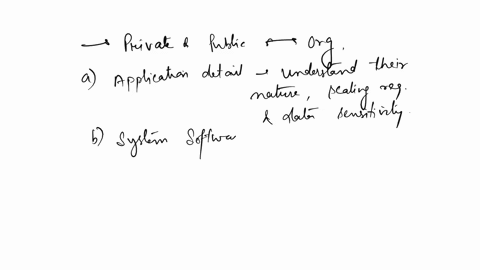 → Private & Public ⟷ Org.
a) Application detail → understand their
nature, scaling req.
& data sensitivity.
b) System Softwa